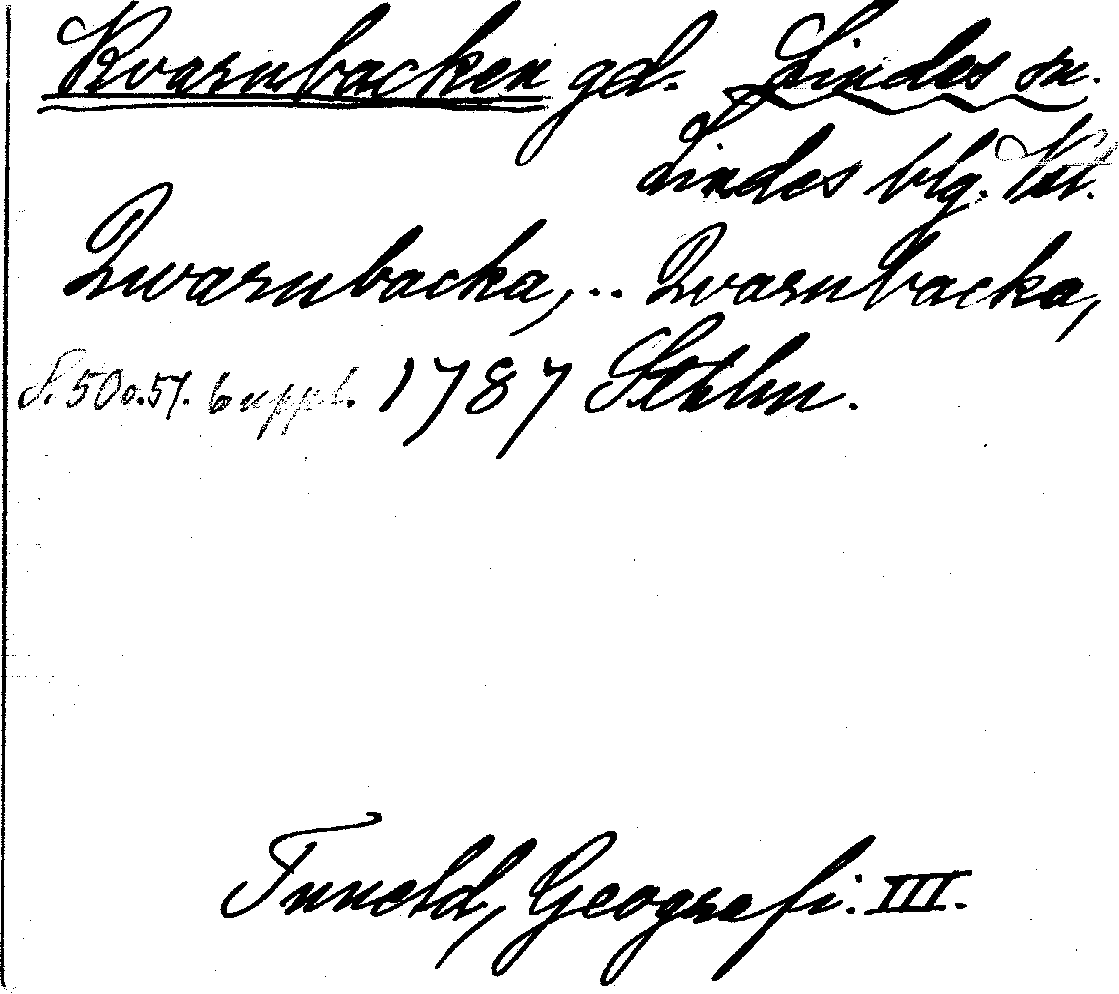 Kvarnbacken gd. Lindes sn.
Lindes blg. Vst.
Qwarnbacka, .. Qvarnbacka,
S. 50 o. 51. 6 uppl. 1787 Sthlm.
Tuneld, Geografi. III.